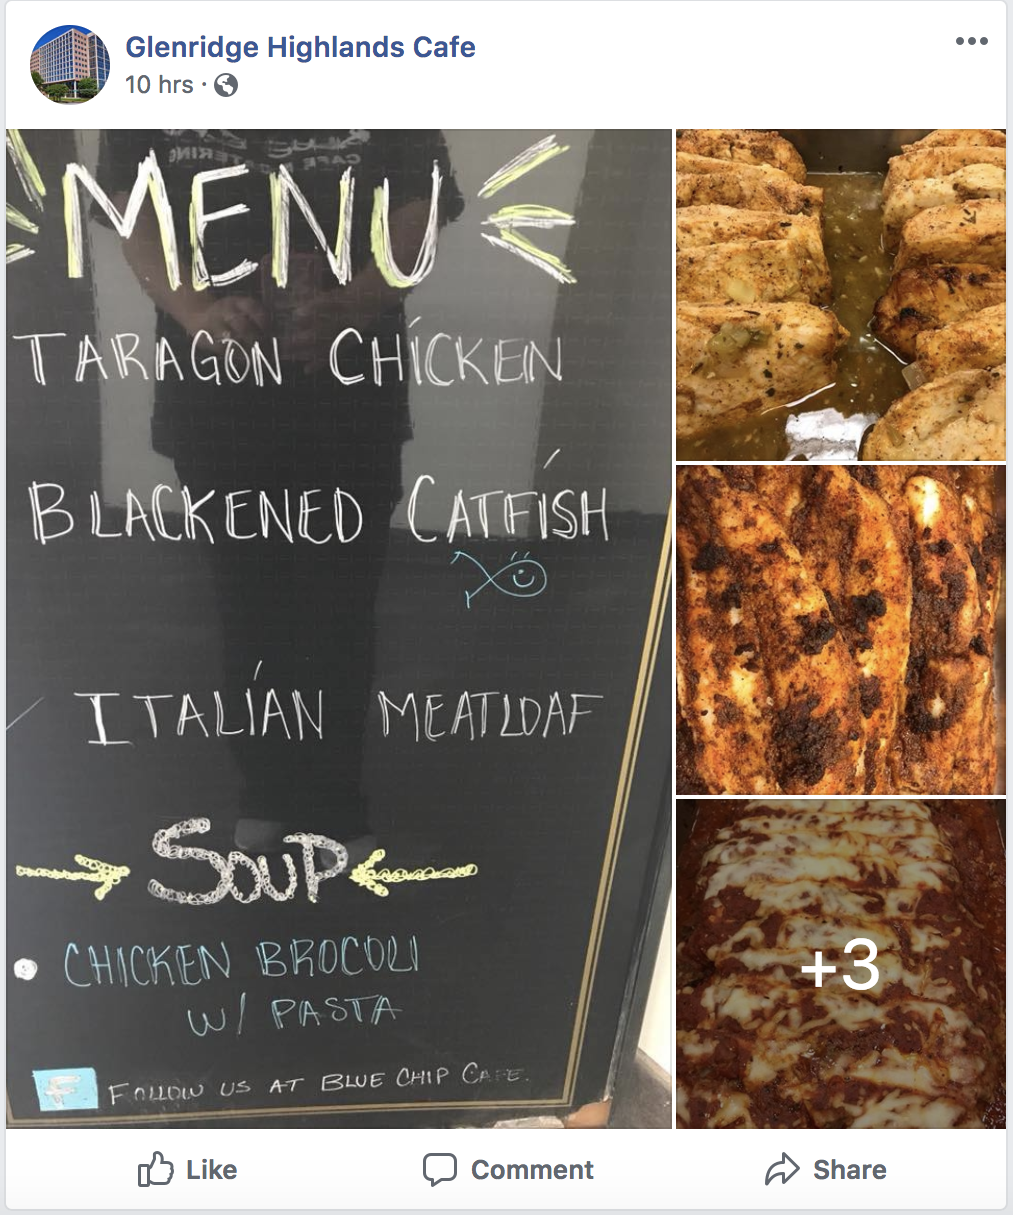 Glenridge Highlands Cafe
10 hrs ·
MENU
TARAGON CHICKEN
BLACKENED CATFISH
ITALIAN MEATLOAF
SOUP
• CHICKEN BROCOLI
W/ PASTA
F FOLLOW US AT BLUE CHIP CAFE.
+3
Like Comment Share